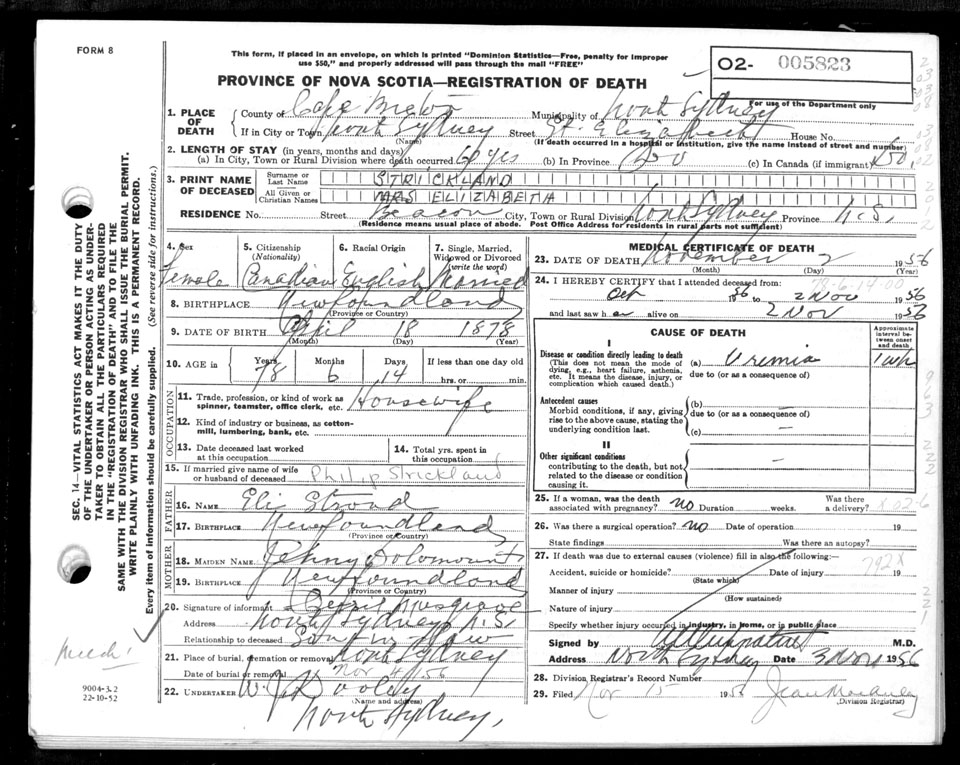 FORM 8
This form, if placed in an envelope, on which is printed "Dominion Statistics—Free, penalty for improper
use $50," and properly addressed will pass through the mail "FREE"
PROVINCE OF NOVA SCOTIA—REGISTRATION OF DEATH
O2- 005823
For use of the Department only
1. PLACE OF DEATH
County of Cape Breton Municipality of North Sydney
If in City or Town North Sydney Street St. Elizabeth House No.
(Name) (If death occurred in a hospital or institution, give the name instead of street and number)
2. LENGTH OF STAY (in years, months and days)
(a) In City, Town or Rural Division where death occurred 60 yrs (b) In Province (c) In Canada (if immigrant)
3. PRINT NAME OF DECEASED
Surname or Last Name STRICKLAND
All Given or Christian Names MRS ELIZABETH
RESIDENCE No. Street Beacon City, Town or Rural Division North Sydney Province N.S.
(Residence means usual place of abode. Post Office Address for residents in rural parts not sufficient)
4. Sex 5. Citizenship 6. Racial Origin 7. Single, Married,
(Nationality) Widowed or Divorced
(write the word)
Female Canadian English Married
8. BIRTHPLACE Newfoundland
(Province or Country)
9. DATE OF BIRTH April 18 1878
(Month) (Day) (Year)
10. AGE in Years Months Days If less than one day
78 6 14 hrs. or min.
OCCUPATION
11. Trade, profession, or kind of work as
spinner, teamster, office clerk, etc. Housewife
12. Kind of industry or business, as cotton-
mill, lumbering, bank, etc.
13. Date deceased last worked
at this occupation
14. Total yrs. spent in
this occupation
15. If married give name of wife
or husband of deceased Philip Strickland
FATHER
16. NAME Eli Stroud
17. BIRTHPLACE Newfoundland
(Province or Country)
MOTHER
18. MAIDEN NAME Jenny
19. BIRTHPLACE Newfoundland
(Province or Country)
20. Signature of informant Musgrave
Address North Sydney N.S.
Relationship to deceased Son in law
21. Place of burial, cremation or removal North Sydney
Date of burial or removal Nov 4/56
22. UNDERTAKER W. J. Dooley
(Name and address)
North Sydney,
MEDICAL CERTIFICATE OF DEATH
23. DATE OF DEATH November 2 1956
(Month) (Day) (Year)
78-6-14-00
24. I HEREBY CERTIFY that I attended deceased from:
Oct 1956 to 2 Nov 1956
and last saw her alive on 2 Nov 1956
CAUSE OF DEATH
Approximate interval between onset and death.
I
Disease or condition directly leading to death
(This does not mean the mode of
dying, e.g., heart failure, asthenia,
etc. It means the disease, injury, or
complication which caused death.)
(a) Uremia 1 wk
due to (or as a consequence of)
Antecedent causes
Morbid conditions, if any, giving
rise to the above cause, stating the
underlying condition last.
(b) —
due to (or as a consequence of)
(c) —
II
Other significant conditions
contributing to the death, but not
related to the disease or condition
causing it.
—
25. If a woman, was the death
associated with pregnancy? no Duration weeks. Was there
a delivery?
26. Was there a surgical operation? no Date of operation 19
State findings Was there an autopsy?
27. If death was due to external causes (violence) fill in also the following:—
792X
Accident, suicide or homicide? Date of injury 19
(State which)
Manner of injury
(How sustained)
Nature of injury
Specify whether injury occurred in industry, in home, or in public place
Signed by M.D.
Address North Sydney Date 3 Nov 1956
28. Division Registrar's Record Number
29. Filed Nov 15 1956
(Division Registrar)
SEC. 14—VITAL STATISTICS ACT MAKES IT THE DUTY
OF THE UNDERTAKER OR PERSON ACTING AS UNDER-
TAKER TO OBTAIN ALL THE PARTICULARS REQUIRED
IN THE "REGISTRATION OF DEATH" AND TO FILE THE
SAME WITH THE DIVISION REGISTRAR WHO SHALL ISSUE THE BURIAL PERMIT.
WRITE PLAINLY WITH UNFADING INK. THIS IS A PERMANENT RECORD.
Every item of information should be carefully supplied. (See reverse side for instructions.)
9004-3.2
22-10-52